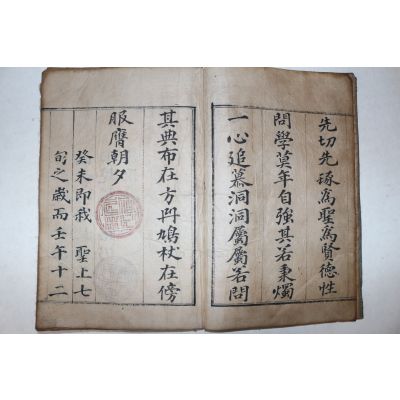 先切先琢為聖為賢德性
問學莫年自強其若秉燭
一心追慕洞洞屬屬若問
其典布在方冊鳩杖在傍
服膺朝夕
癸未即我 聖上七
旬之歲而壬午十二